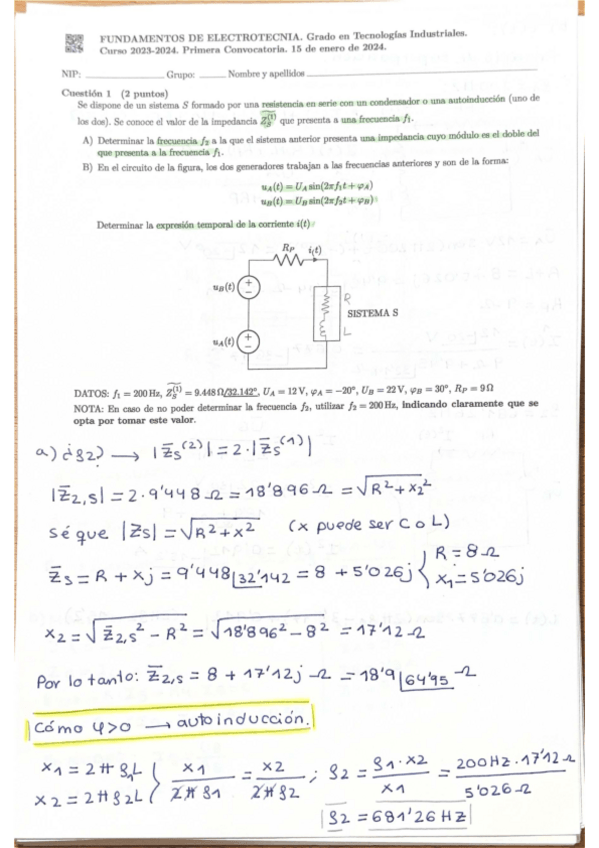 FUNDAMENTOS DE ELECTROTECNIA. Grado en Tecnologías Industriales.
Curso 2023-2024. Primera Convocatoria. 15 de enero de 2024.
NIP: ____________ Grupo: _____ Nombre y apellidos ____________
Cuestión 1 (2 puntos)
Se dispone de un sistema S formado por una resistencia en serie con un condensador o una autoinducción (uno de
los dos). Se conoce el valor de la impedancia Z̃_S^(1) que presenta a una frecuencia f₁.
A) Determinar la frecuencia f₂ a la que el sistema anterior presenta una impedancia cuyo módulo es el doble del
que presenta a la frecuencia f₁.
B) En el circuito de la figura, los dos generadores trabajan a las frecuencias anteriores y son de la forma:
u_A(t) = U_A sin(2πf₁t + φ_A)
u_B(t) = U_B sin(2πf₂t + φ_B)
Determinar la expresión temporal de la corriente i(t)
R_P i(t)
u_B(t) + −
R
SISTEMA S
L
u_A(t) + −
DATOS: f₁ = 200 Hz, Z̃_S^(1) = 9.448 Ω/32.142°, U_A = 12 V, φ_A = −20°, U_B = 22 V, φ_B = 30°, R_P = 9 Ω
NOTA: En caso de no poder determinar la frecuencia f₂, utilizar f₂ = 200 Hz, indicando claramente que se
opta por tomar este valor.
a) ¿f2? → |Z̄s⁽²⁾| = 2·|Z̄s⁽¹⁾|
|Z̄2,s| = 2·9'448 Ω = 18'896 Ω = √(R² + x₂²)
Sé que |Zs| = √(R² + x²) (x puede ser C o L)
Z̄s = R + xj = 9'448 |32'142 = 8 + 5'026j { R = 8 Ω
x₁ = 5'026j
x₂ = √(Z̄2,s² − R²) = √(18'896² − 8²) = 17'12 Ω
Por lo tanto: Z̄2,s = 8 + 17'12j Ω = 18'9 |64'95 Ω
Cómo φ>0 → autoinducción.
x₁ = 2πf₁L } x1/2πf1 = x2/2πf2 ; f2 = f1·x2/x1 = 200Hz·17'12 Ω/5'026 Ω
x₂ = 2πf2L
f2 = 681'26 Hz